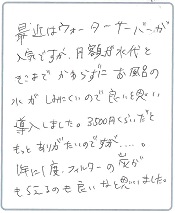 最近はウォーターサーバーが
人気ですが、月額が水代と
そこまでかわらずに お風呂の
水が しみにくいので良いと思い
導入しました。3500円くらいだと
もっとありがたいのですが……。
1年に1度、フィルターの炭が
もらえるのも良いなと思いました。